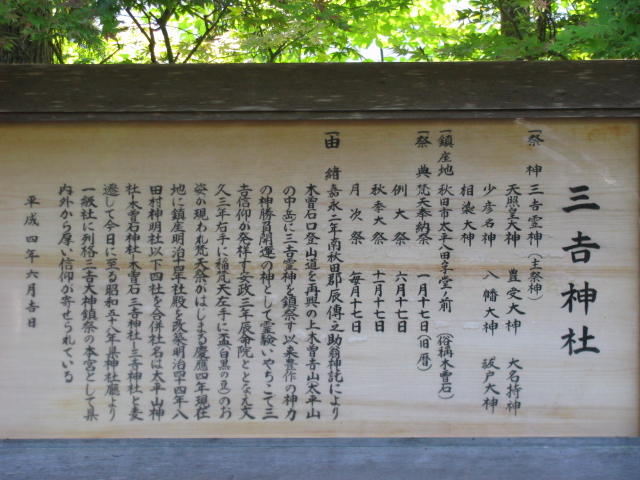 三吉神社
一祭 神 三吉霊神(主祭神)
天照皇大神 豊受大神 大名持神
少彦名神 八幡大神 祓戸大神
相染大神
一鎮座地 秋田市太平八田字堂ノ前 (俗稱木曽石)
一祭典 梵天奉納祭 一月十七日(旧暦)
例大祭 六月十七日
秋季大祭 十一月十七日
月次祭 毎月十七日
一由 緒 嘉永二年南秋田郡辰傳之助翁神託により
木曽石口登山道を再興の上木曽𠮷山(太平山
の中岳に三吉霊神を鎮祭す以来豊作の神力
の神勝負開運の神として霊験いやちこで三
吉信仰が発祥す安政三年辰命院ととなえ文
久三年右手に稲梵天左手に盃白黒の豆)のお
姿が現われ梵天祭がはじまる慶應四年現在
地に鎮座明治十四年社殿を改築明治四十四年八
田村神明社以下四社を合併社名は太平山神
社・木曽石神社・木曽石三吉神社・三吉神社と変
遷して今日に至る昭和五十八年県神社廳より
一級社に列格三吉大神鎮祭の本宮として県
内外から厚い信仰が寄せられている
平成四年六月吉日